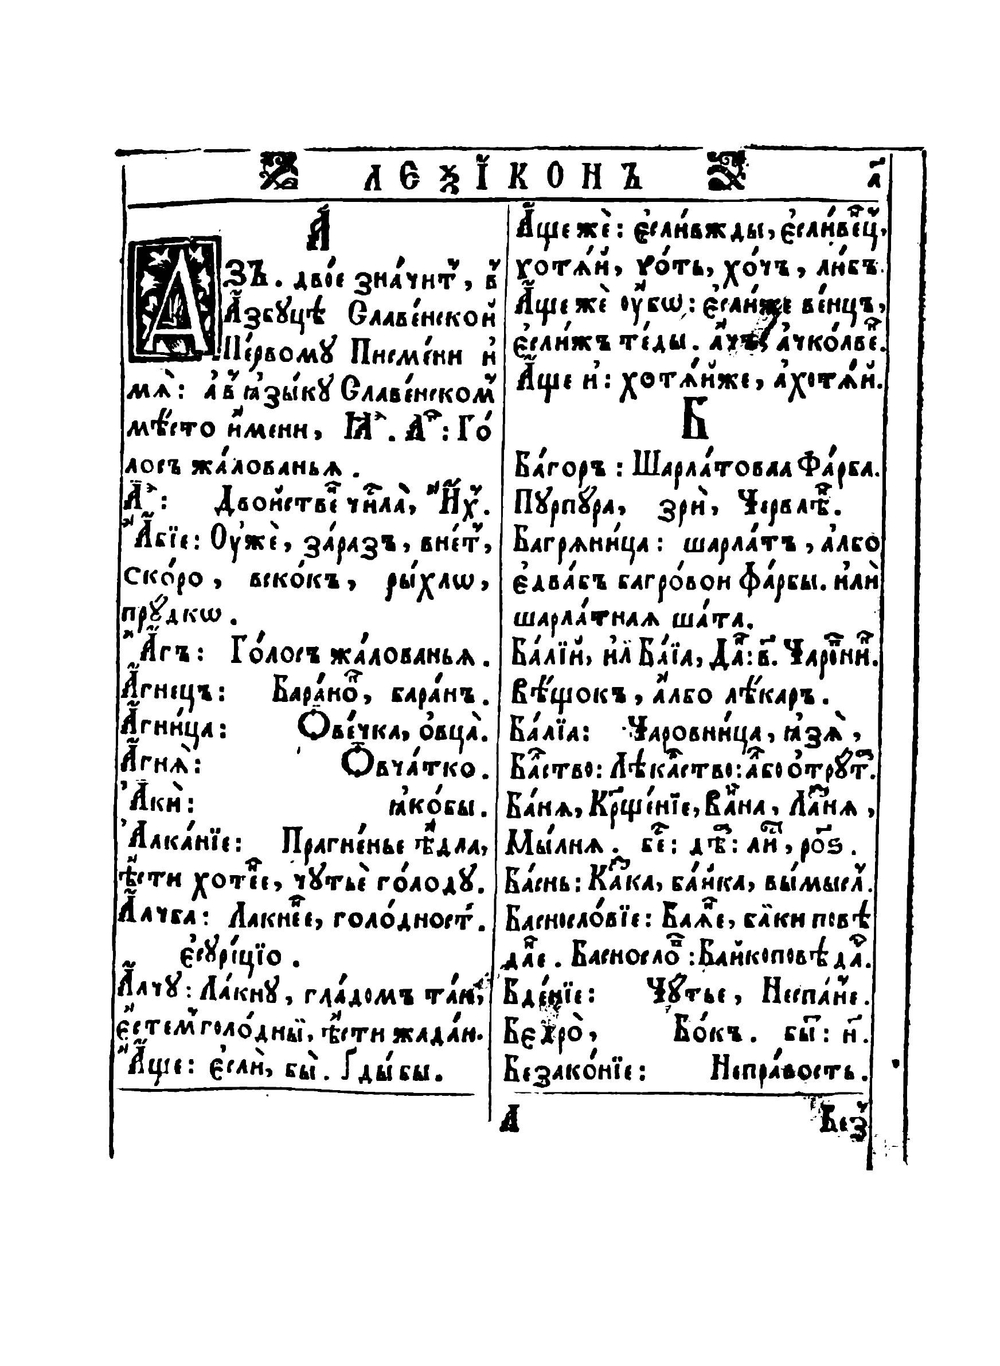 ЛЕѮЇКОНЪ а҃
А҆
АЗЪ. двоє значит, в
Азбуцѣ Славенской
Первому Писмени и
мѧ: а в ꙗзыку Славенском
мѣсто имени, Ꙗ. Аг: Го
лосъ жалованьѧ.
А: Двойствен числа, Их.
Абїе: Оуже, заразъ, внет,
скоро, вскокъ, рыхлѡ,
прꙋдкѡ.
Агъ: Голосъ жалованьѧ.
Агнецъ: Баранок, баранъ.
Агница: Ѻвечка, овца.
Агнѧ: Ѻвчатко.
Аки: ꙗкобы.
Алканїе: Прагненье ѣдла,
ѣсти хотѣнїе, чꙋтьє голодꙋ.
Алчба: Лакненє, голодност.
єсꙋрїцїо.
Алчꙋ: Лакнꙋ, гладомъ таю,
єстем голодный, ѣсти жадаю.
Аще: єсли, бы. Ґдыбы.
Аще же: єсливжды, єсливенц,
хотѧй, хоть, хочъ, любъ.
Аще же оубѡ: єслиже венцъ,
єслижъ теды. ачъ, ачколвек.
Аще и: хотѧйже, ахотѧй.
Б
Багоръ: Шарлатоваѧ Фарба.
Пꙋрпꙋра, зри, Червлен.
Багрѧница: шарлатъ, албо
єдвабъ багровои фарбы. или
шарлатнаѧ шата.
Балїй, ил Баїа, Дан: в҃. Чаровник.
Вѣщокъ, албо лѣкаръ.
Балїа: Чаровница, ꙗзѧ,
Балство: Лѣкарство: або отрꙋт.
Банѧ, Крщенїе, Ванна, Лазнѧ,
Мылнѧ. бе: де: ли, роз.
Баснь: Казка, байка, вымысл.
Баснословїе: Баѧнє, байки повѣ
данє. Баснослов: Байкоповѣдач.
Бденїе: Чꙋтье, Неспанїе.
Бедро, Бокъ. бы: н҃.
Безаконїе: Неправость.
А Без